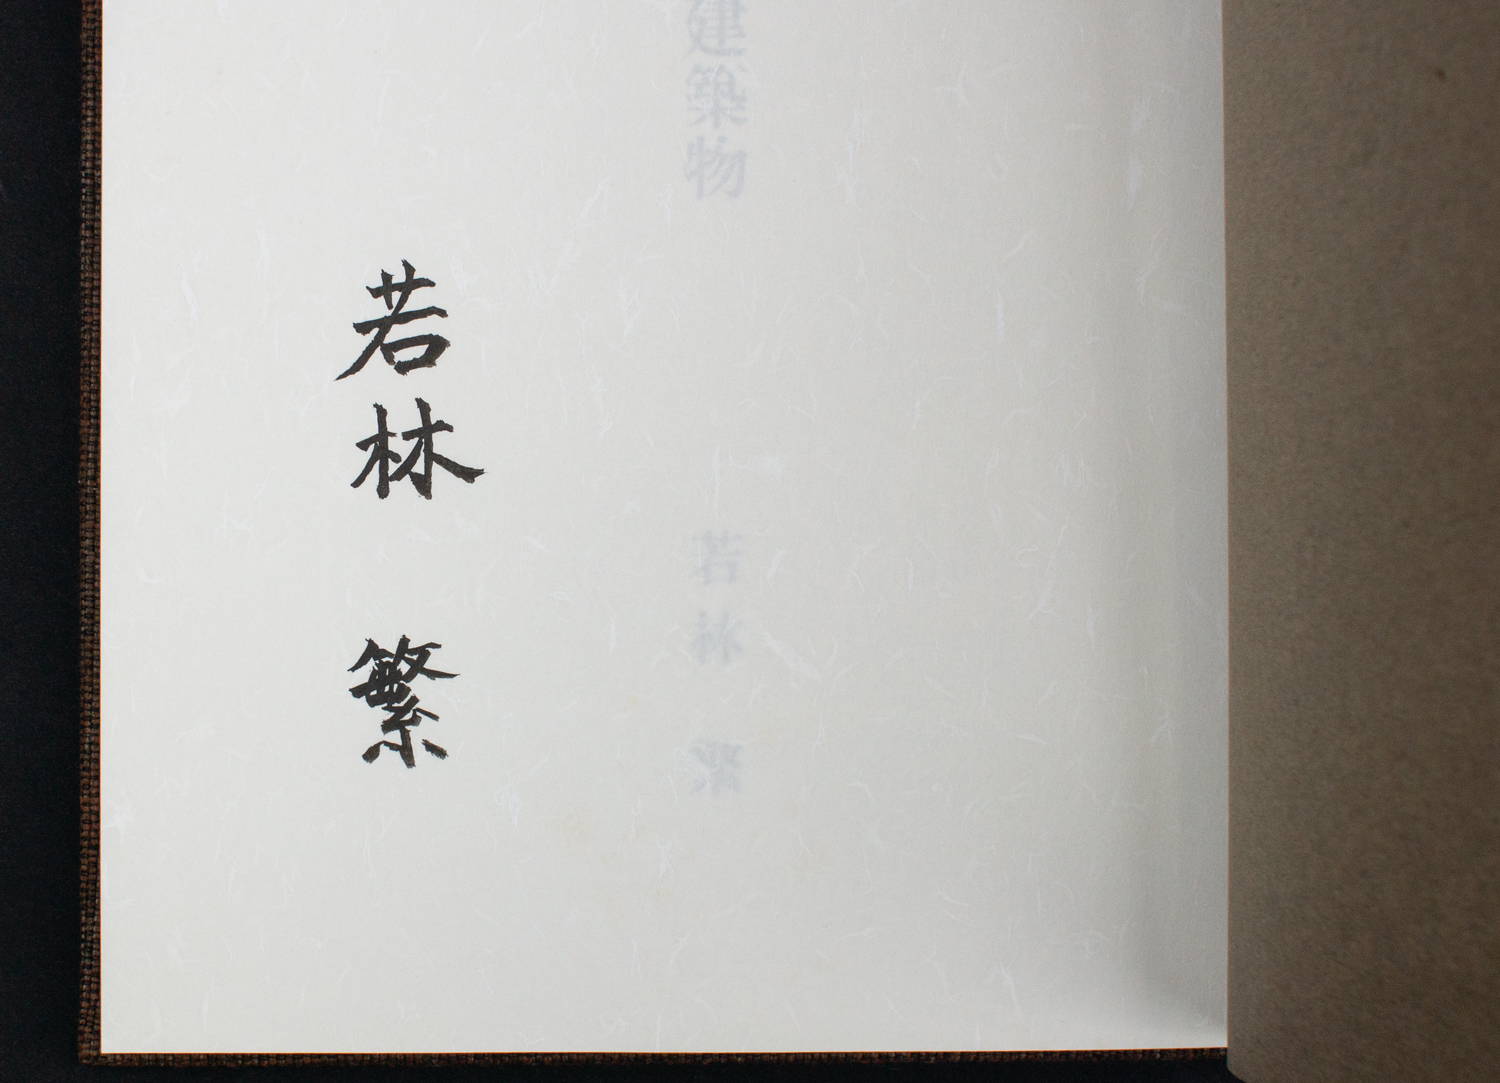 建築物
若林 繁
若林 繁